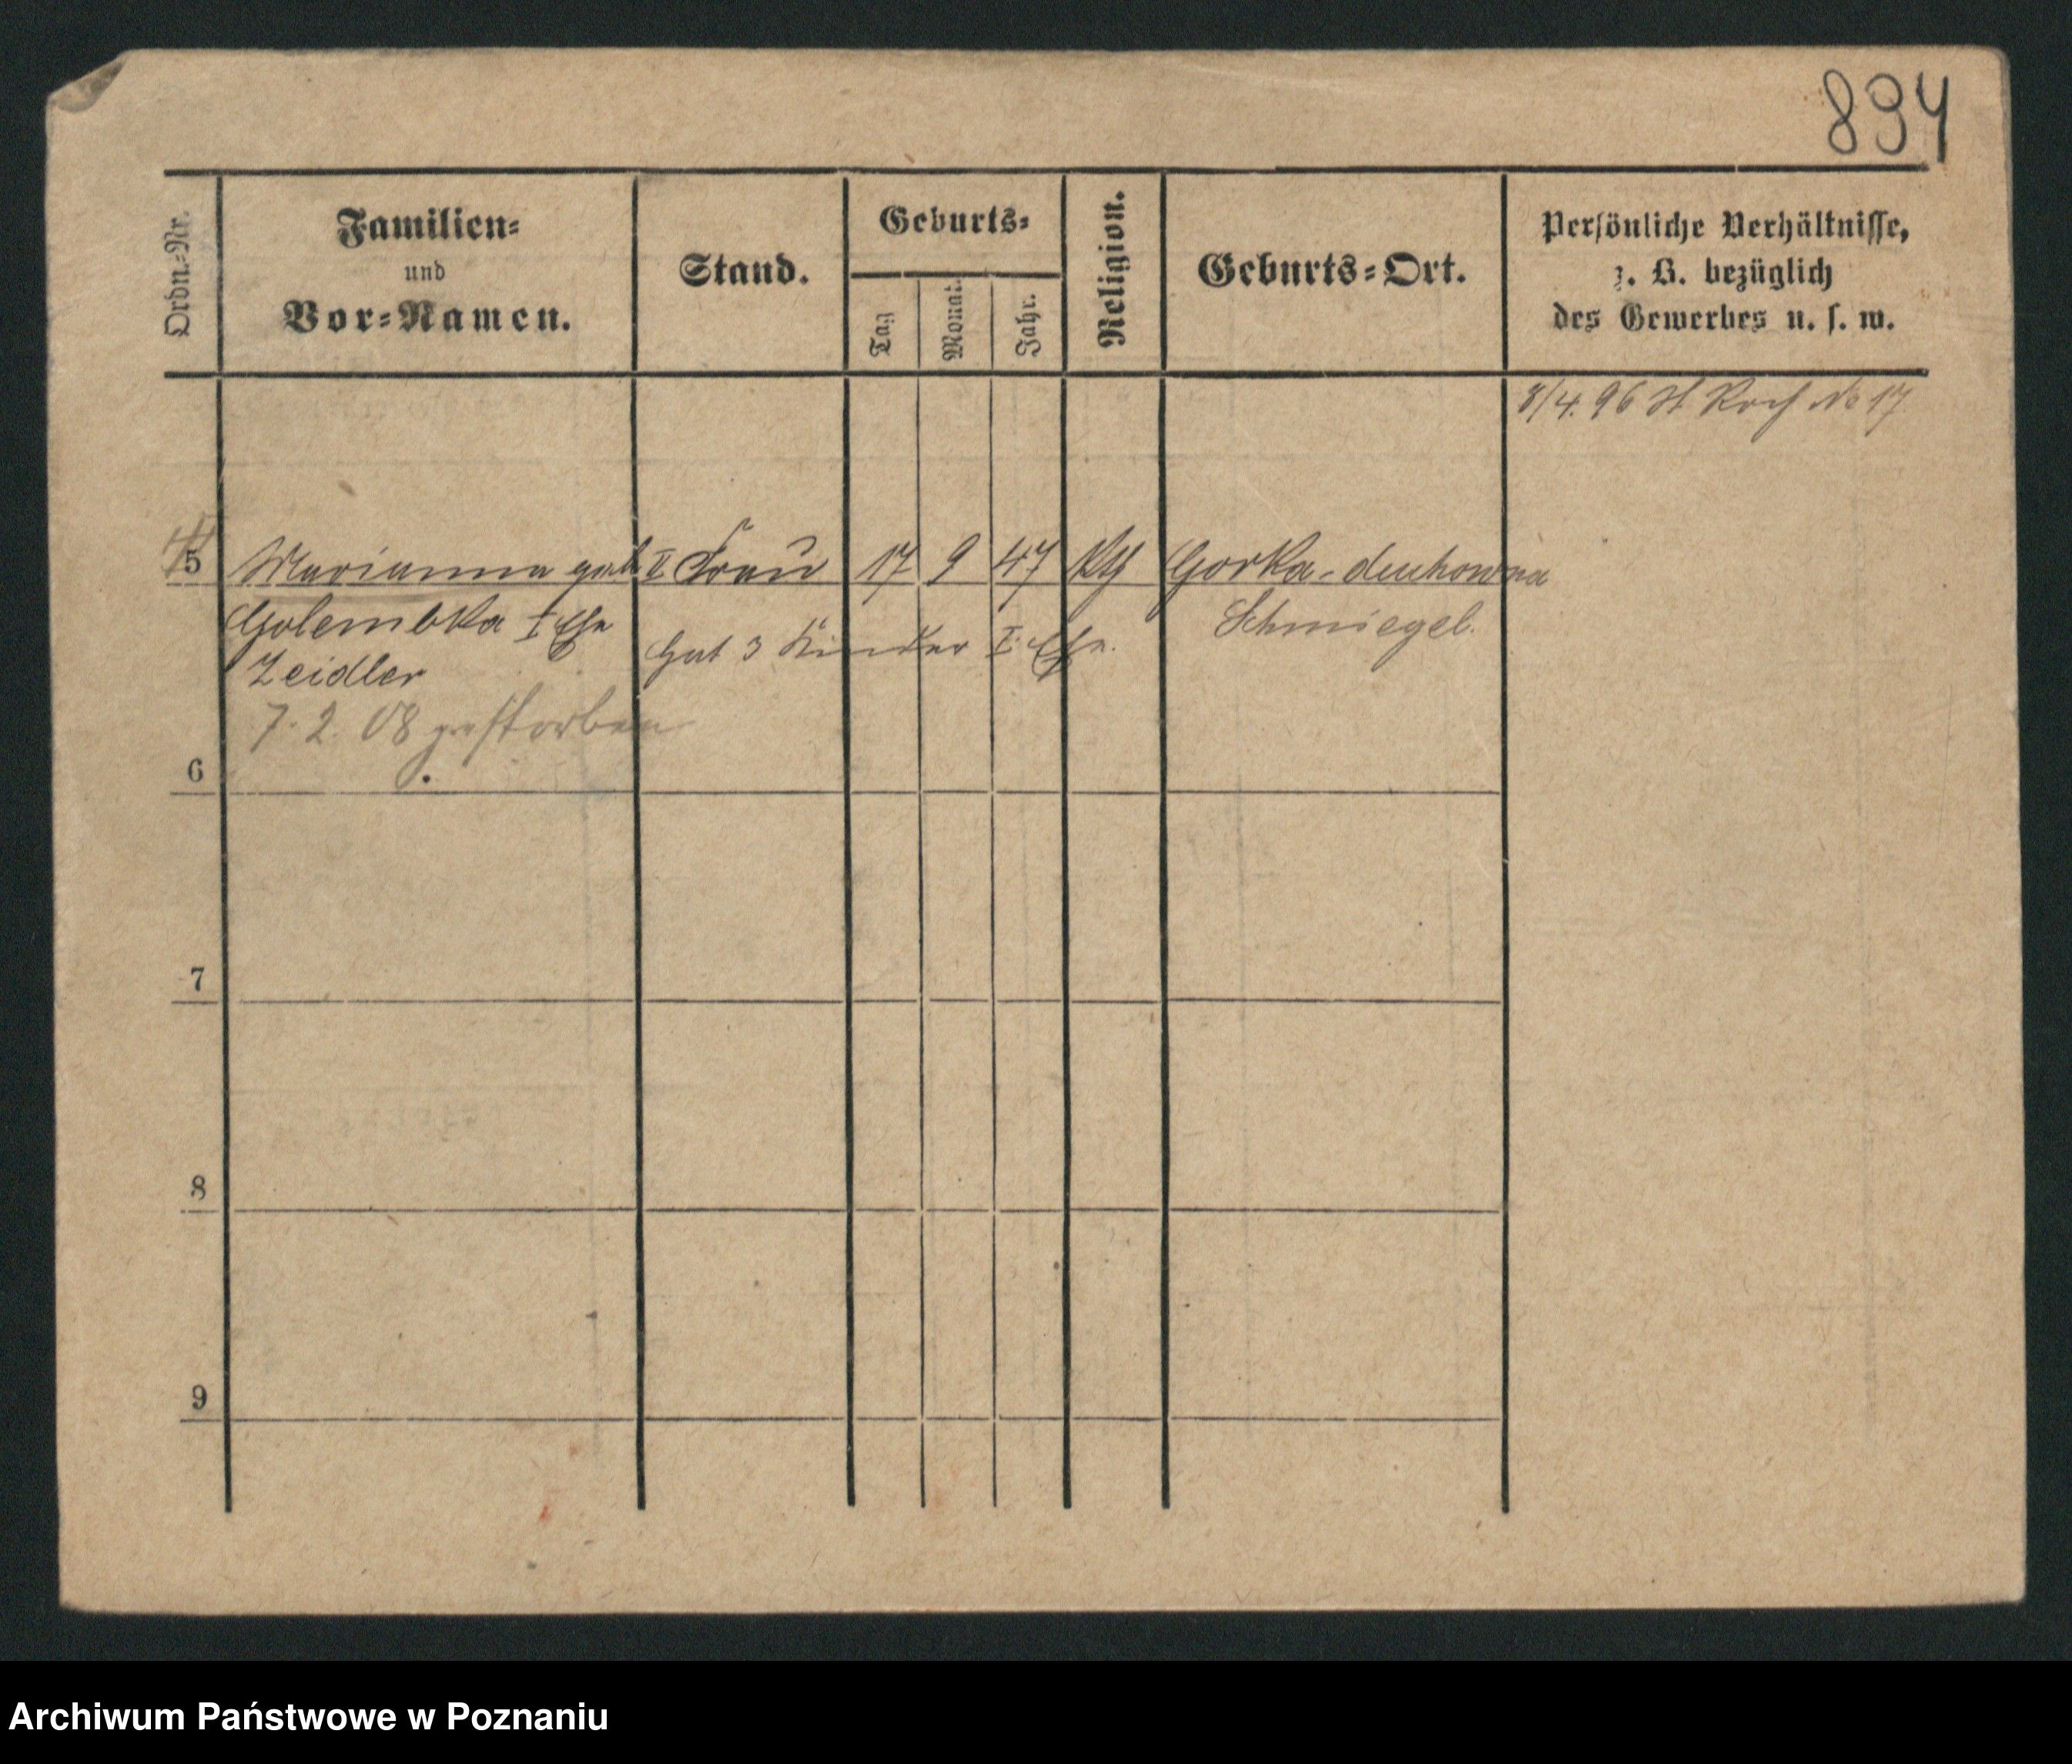 894
Ordn.-Nr.
Familien-
und
Vor-Namen.
Stand.
Geburts-
Tag
Monat.
Jahr.
Religion.
Geburts-Ort.
Persönliche Verhältnisse,
z. B. bezüglich
des Gewerbes u. s. w.
8/4. 96 St Roch No 17
5 Marianna geb II Frau 17 9 47 Kth Gorka-duchowna
Golembka I Ehe Schmiegel.
hat 3 Kinder I. Ehe.
Zeidler
7. 2. 08 gestorben
6
7
8
9
Archiwum Państwowe w Poznaniu